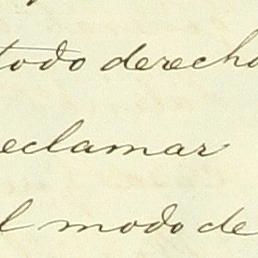 todo derecho
reclamar
el modo de